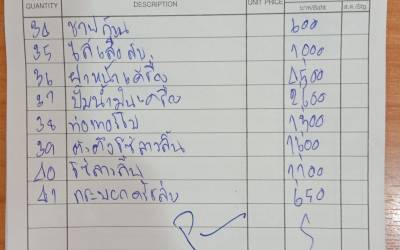 QUANTITY DESCRIPTION UNIT PRICE บาท/Baht ส.ต./Stg.
34 ชาฟก้าน 600
35 ไส้เสื้อสูบ 1000
36 ฝาหน้าเครื่อง 4500
37 ปั้มน้ำมันเครื่อง 2600
38 ท่อเทอร์โบ 1300
39 ตัวตั้งโซ่ลาวลิ้น 1600
40 โซ่ลาวลิ้น 1100
41 กระบอกครัสล่าง 650